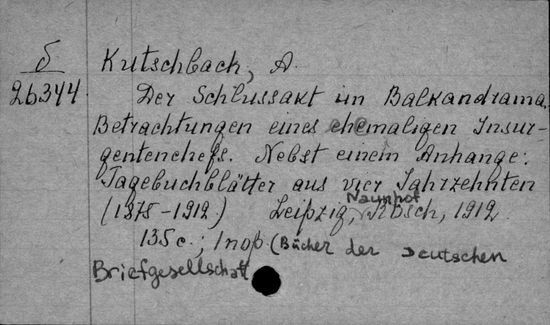 б
26344.
Kutschbach, A.
Der Schlussakt im Balkandrama.
Betrachtungen eines ehemaligen Insur-
gentenchefs. Nebst einem Anhange:
Tagebuchblätter aus vier Jahrzehnten
Naunhof
(1875-1912) Leipzig, Rösch, 1912
135 с.; 1 пор (Bücher der Deutschen
Briefgesellschaft